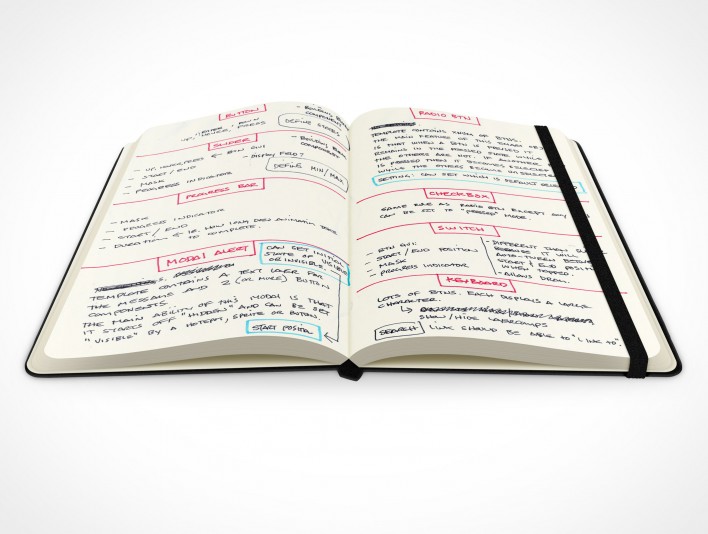 BUTTON
- BUILDING BLOCK COMPONENT
UP, HOVER, PRESS
DEFINE STATES
SLIDER
- BUILDING BLOCK COMPONENT
- UP, HOVER/PRESS ← BTN GUI
- DISPLAY FIELD?
- START/END
DEFINE MIN/MAX
- MASK
- PROGRESS INDICATOR
PROGRESS BAR
- MASK
- PROGRESS INDICATOR
- START/END
- DURATION
HOW LONG DOES ANIMATION TAKE
TO COMPLETE.
MODAL ALERT
CAN SET INITIAL
STATE OF VISIBLE
OR INVISIBLE
TEMPLATE CONTAINS A TEXT LAYER FOR
THE MESSAGE AND 2 (OR MORE) BUTTON
COMPONENTS.
THE MAIN ABILITY OF THIS MODAL IS THAT
IT STARTS OFF "HIDDEN" AND CAN BE SET
"VISIBLE" BY A HOTSPOT/SPRITE OR BUTTON.
START POSITION
RADIO BTN
TEMPLATE CONTAINS
OF BTNS.
THE MAIN FEATURE OF THIS SMART
IS THAT WHEN A BTN IS PRESSED IT
REMAINS IN THE PRESSED STATE WHILE
THE OTHERS ARE NOT. IF ANOTHER
IS PRESSED THEN IT BECOMES SELECTED
WHILE THE OTHERS BECOME
SETTING: CAN SET WHICH IS DEFAULT
CHECKBOX
SAME RULE AS RADIO BTN EXCEPT ANY
CAN BE SET TO "PRESSED" MODE
SWITCH
- BTN GUI
- START/END POSITION
- MASK
- PROGRESS INDICATOR
- DIFFERENT THAN
BECAUSE IT WILL
AUTO-TWEEN BETWEEN
START & END
WHEN TAPPED.
- ALLOWS DRAG.
KEYBOARD
LOTS OF BTNS. EACH DISPLAYS A
CHARACTER.
SHOW/HIDE
SEARCH
LINK SHOULD BE ABLE TO "LINK TO".